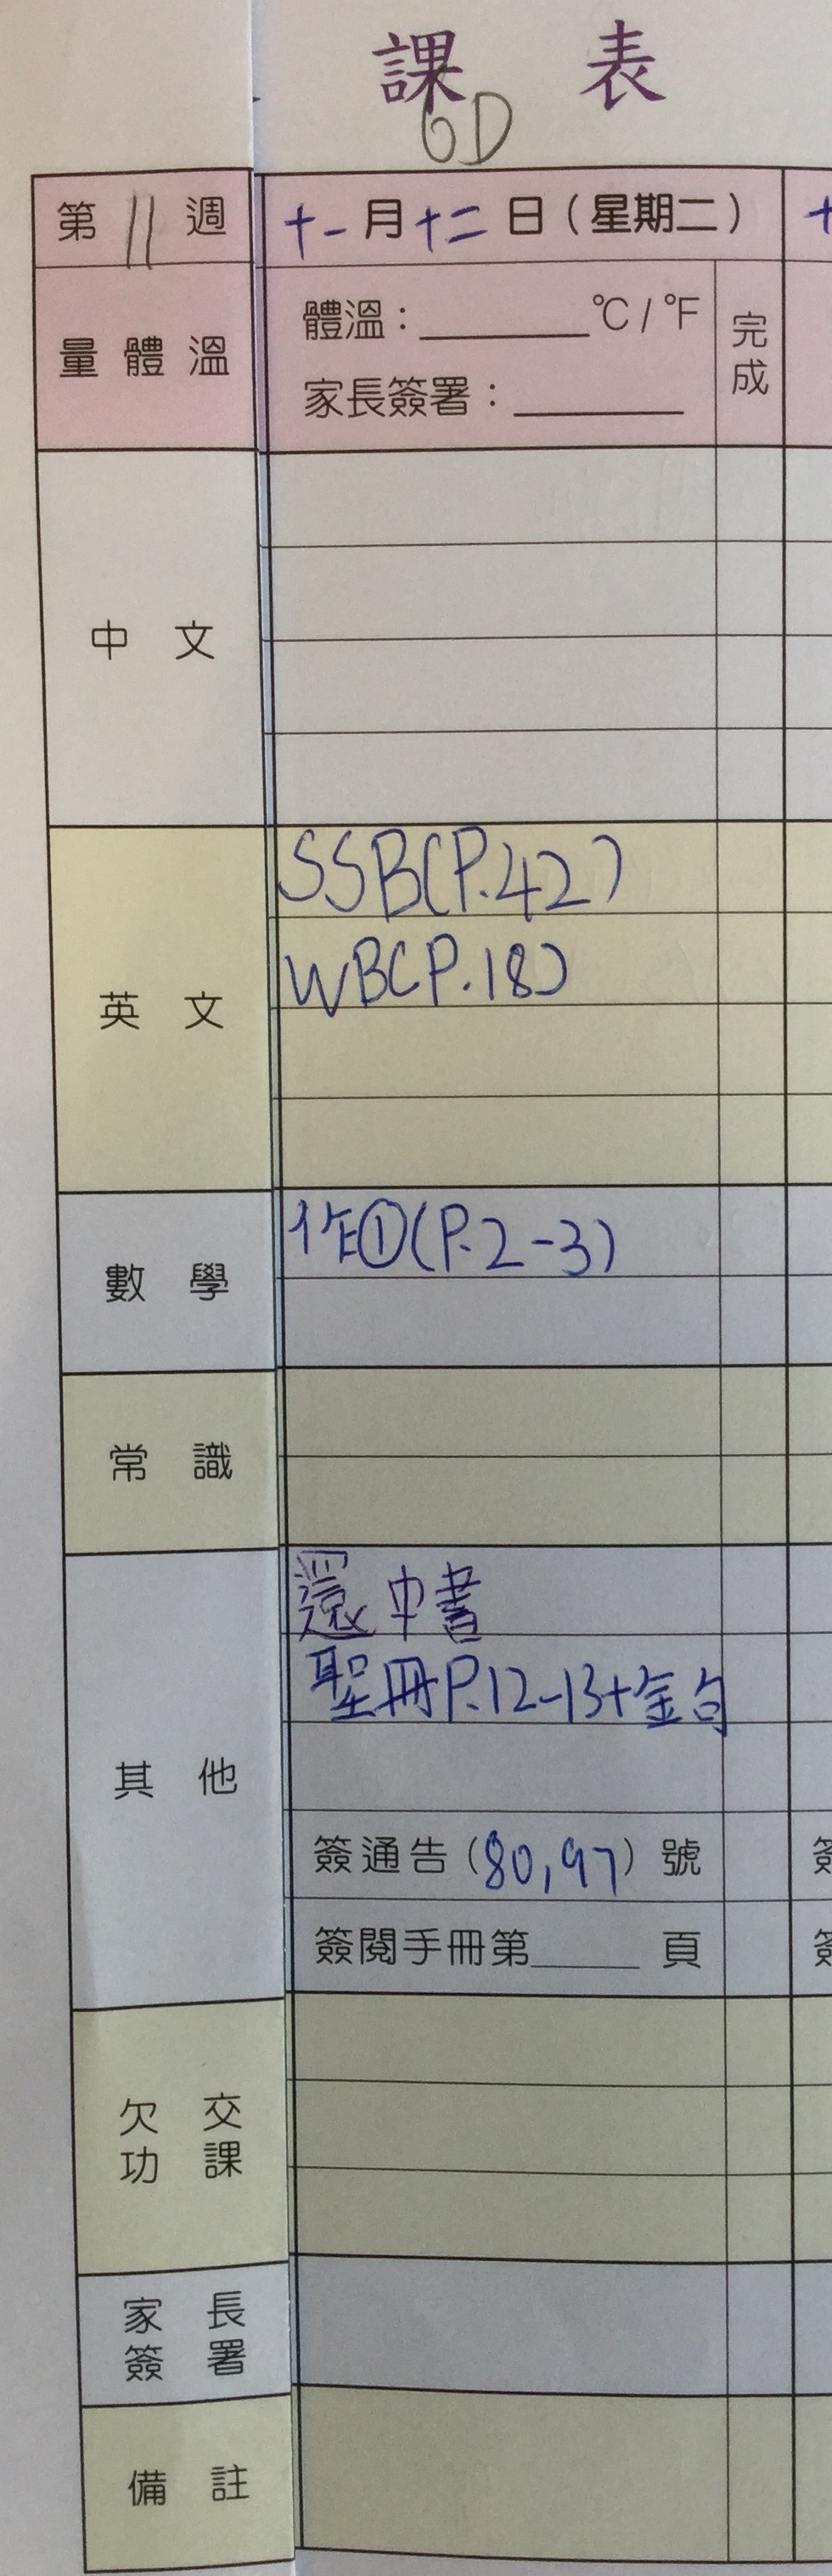 課 表
6D
第 11 週
十一月十二日(星期二)
量體溫
體溫:______°C / °F
家長簽署:______
完成
中文
英文
SSB(P.42)
WB(P.18)
數學
作①(P.2-3)
常識
其他
還中書
聖冊P.12-13+金句
簽通告(80,97)號
簽閱手冊第____頁
欠交功課
家長簽署
備註